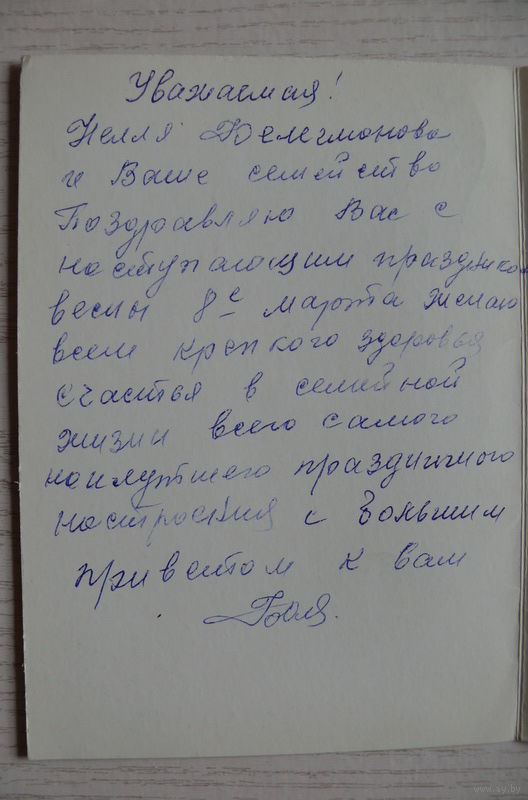 Уважаемая!
Нелля
и Ваше семейство
Поздравляю Вас с
наступающим праздником
весны 8е марта желаю
всем крепкого здоровья
счастья в семейной
жизни всего самого
наилутшего праздничного
настроения с большим
приветом к вам
www.ay.by